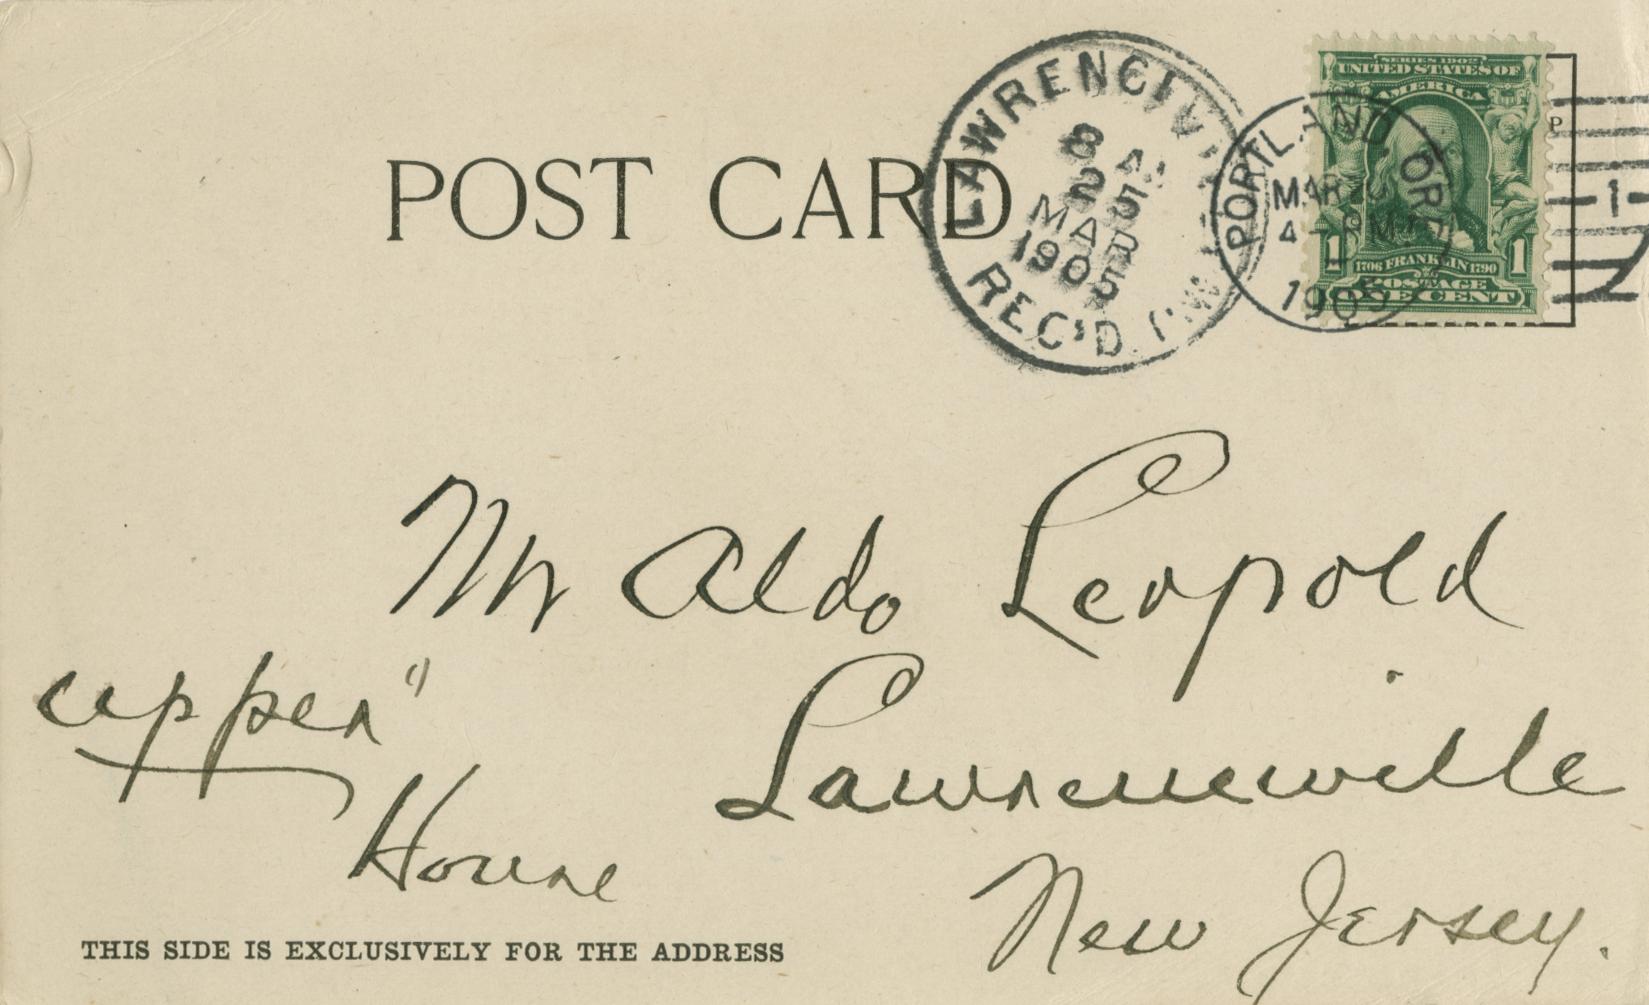 POST CARD
LAWRENCEVILLE
8 AM
25
MAR
1905
REC'D.
PORTLAND, ORE.
MAR
4 - PM
1905
SERIES 1902
UNITED STATES OF
AMERICA
1 1706 FRANKLIN 1790 1
POSTAGE
ONE CENT
P
1
Mr Aldo Leopold
"Upper"
Lawrenceville
House
New Jersey.
THIS SIDE IS EXCLUSIVELY FOR THE ADDRESS